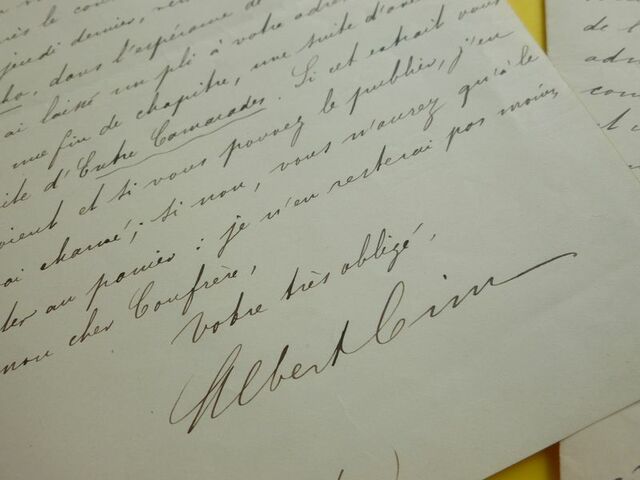 près le cou
jeudi dernier, re
dans l'espérance de
ai laissé un pli à votre adre
une fin de chapitre, une suite d'ave
ite d'Entre Camarades. Si cet extrait vous
vient et si vous pouvez le publier, j'en
ai charmé; si non, vous n'aurez qu'à le
ter au panier: je n'en resterai pas moins,
mon cher Confrère,
Votre très obligé,
Albert Cim
de l'
adr
com
et